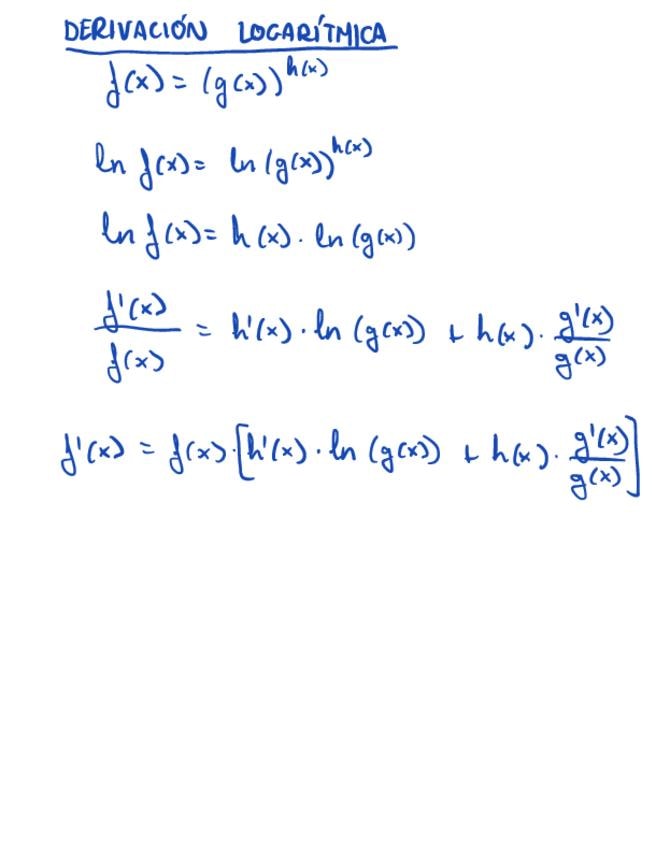 DERIVACIÓN LOGARÍTMICA
f(x) = (g(x))^h(x)
ln f(x) = ln (g(x))^h(x)
ln f(x) = h(x) · ln (g(x))
f'(x)/f(x) = h'(x) · ln (g(x)) + h(x) · g'(x)/g(x)
f'(x) = f(x) · [h'(x) · ln (g(x)) + h(x) · g'(x)/g(x)]